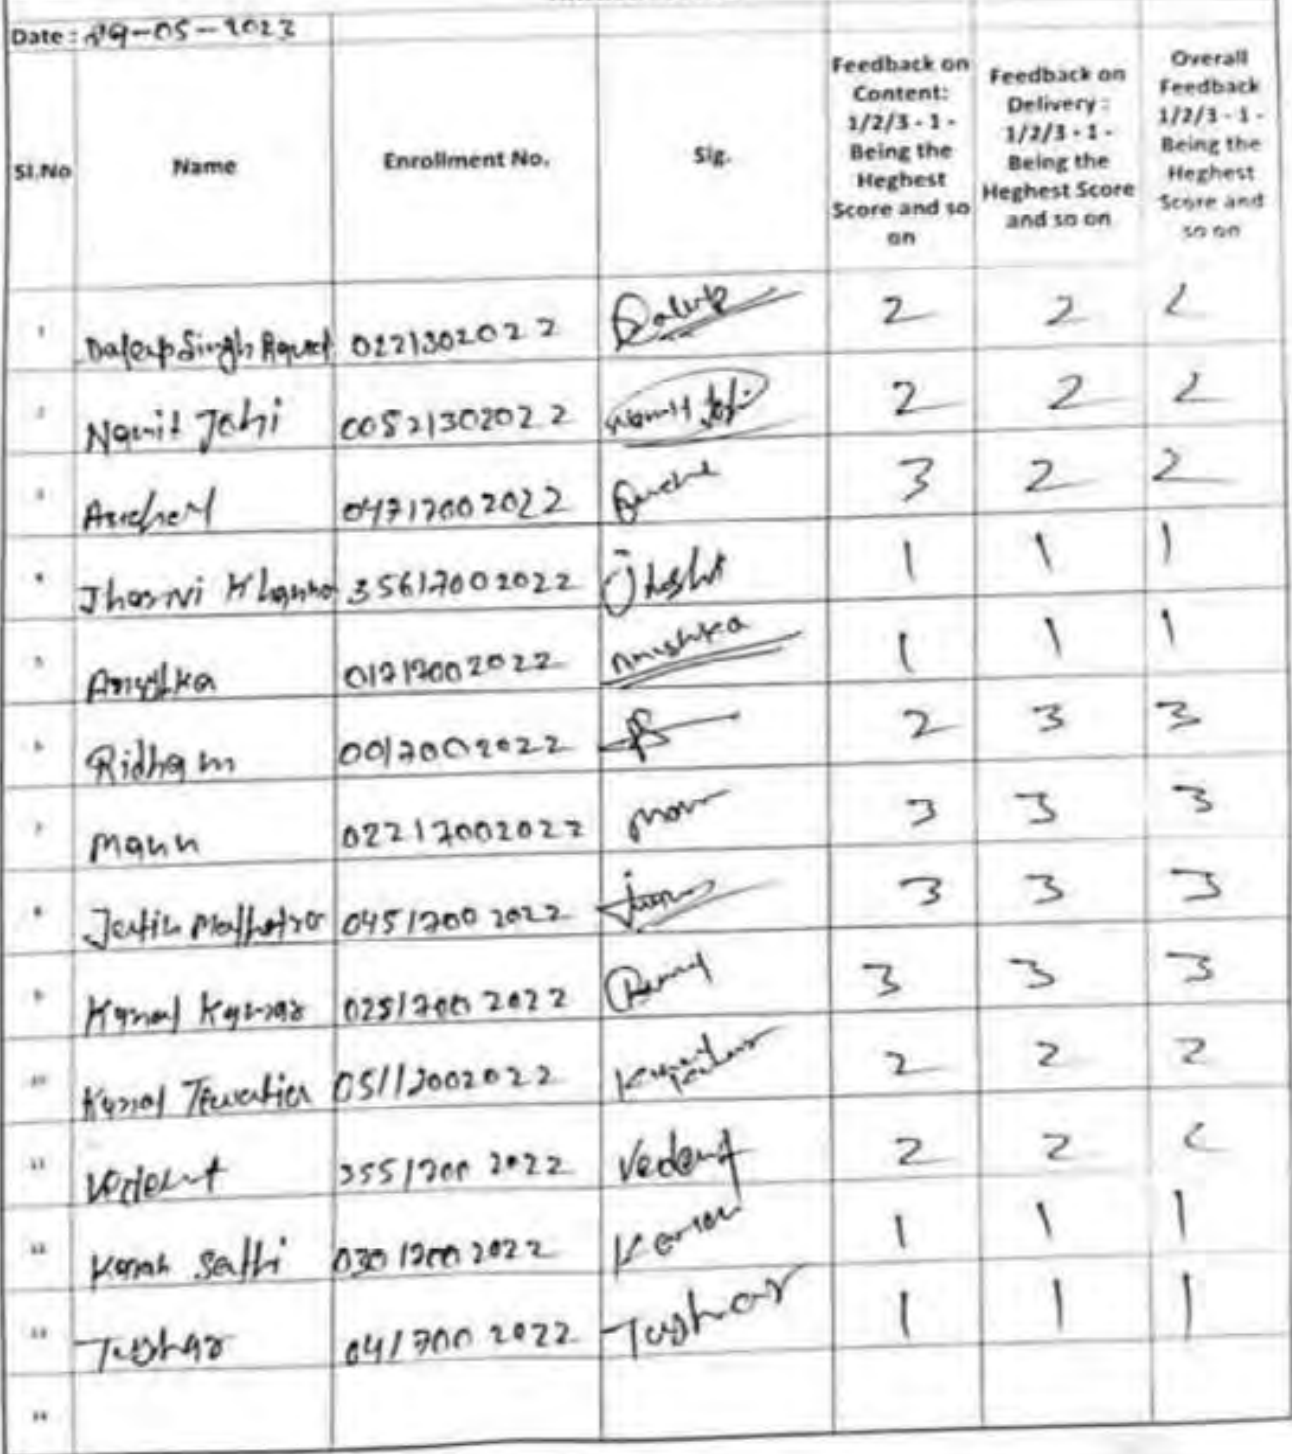 Date : 29-05-2022
Sl.No Name Enrollment No. Sig. Feedback on Content: 1/2/3 - 1 - Being the Heghest Score and so on Feedback on Delivery : 1/2/3 - 1 - Being the Heghest Score and so on Overall Feedback 1/2/3 - 1 - Being the Heghest Score and so on
1 Singh 0221302022 2 2 2
2 Namit 00521302022 Namit 2 2 2
3 04717002022 3 2 2
4 35617002022 1 1 1
5 01717002022 Anushka 1 1 1
6 Ridham 0017002022 2 3 3
7 Mann 02217002022 3 3 3
8 Jatin Malhotra 04517002022 3 3 3
9 Kunal Kumar 02517002022 3 3 3
10 Kunal Tewatia 05117002022 2 2 2
11 Vedant 35517002022 Vedant 2 2 2
12 Karan Sethi 03017002022 Karan 1 1 1
13 Tushar 0417002022 Tushar 1 1 1
14